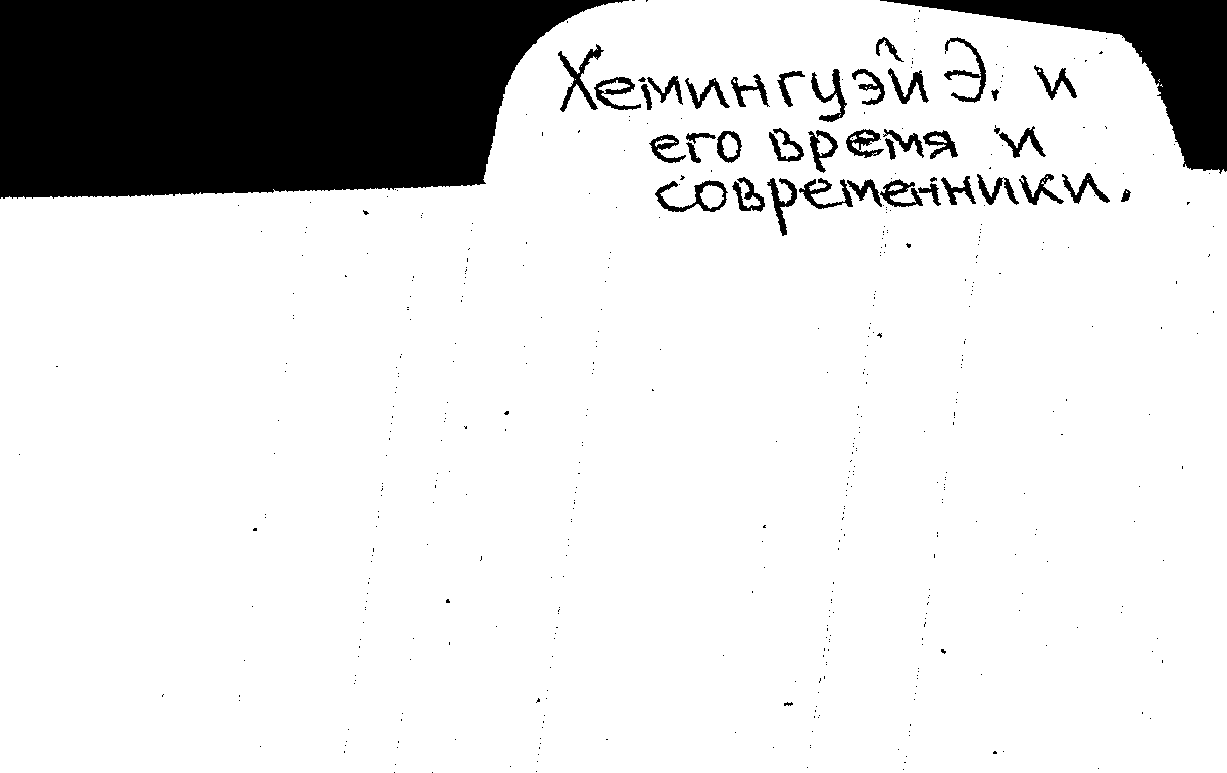 Хемингуэй Э. и
его время и
современники.